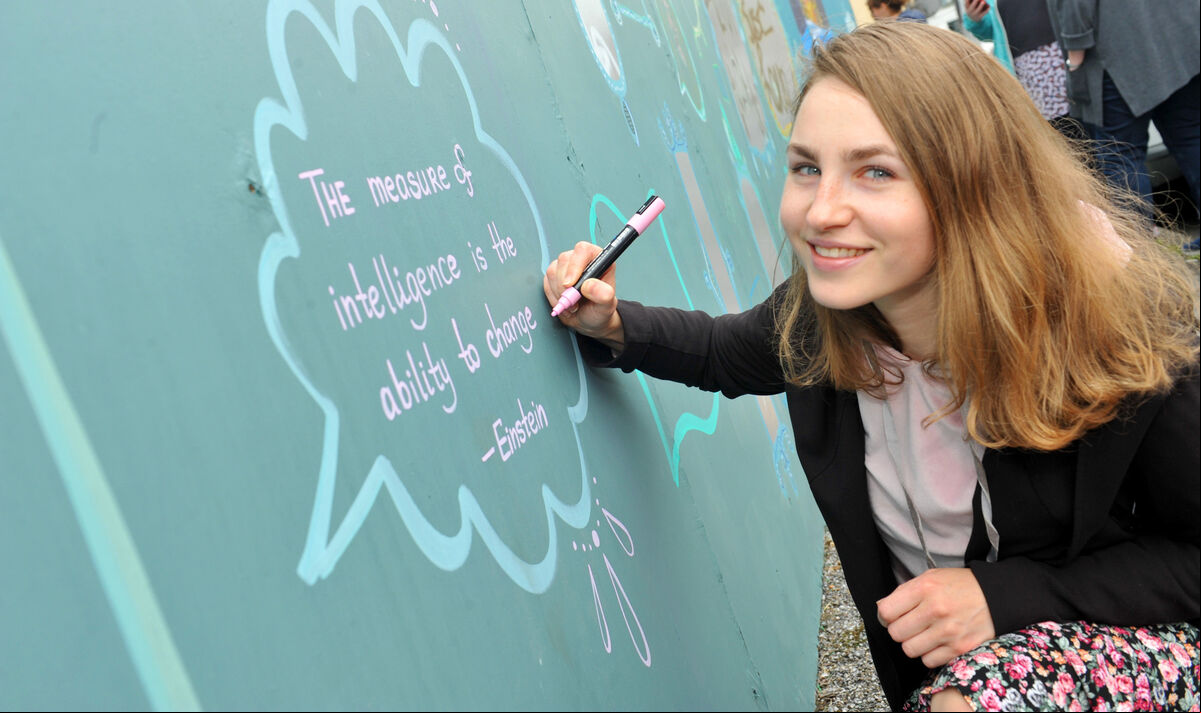 THE measure of
intelligence is the
ability to change
-Einstein